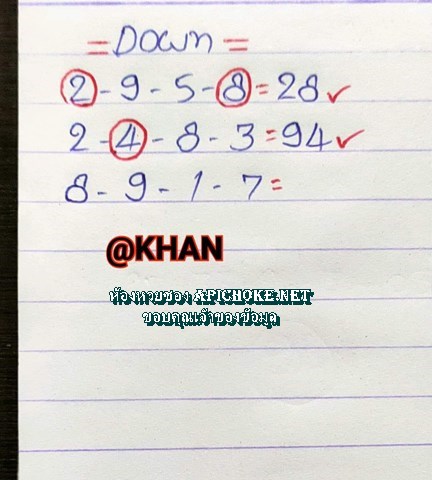 =Down=
2-9-5-8=28✓
2-4-8-3=94✓
8-9-1-7=
@KHAN
ห้องหวยซอง APICHOKE.NET
ขอบคุณเจ้าของข้อมูล